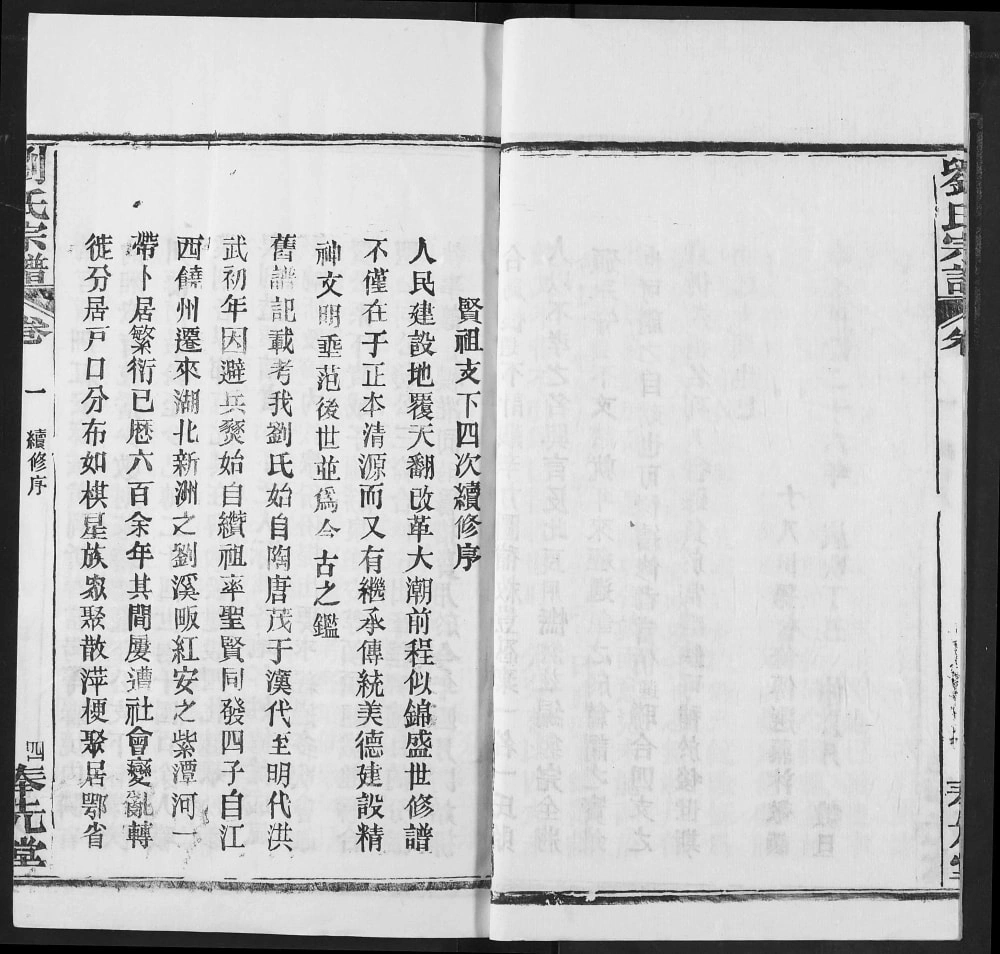 劉氏宗譜
賢祖支下四次續修序
人民建設地覆天翻改革大潮前程似錦盛世修譜
不僅在于正本清源而又有繼承傳統美德建設精
神文明垂范後世並爲今古之鑑
舊譜記載考我劉氏始自陶唐茂于漢代至明代洪
武初年因避兵燹始自纘祖率聖賢同發四子自江
西饒州遷來湖北新洲之劉溪畈紅安之紫潭河一
帶卜居繁衍已歷六百余年其間屢遭社會變亂轉
徙分居戸口分布如棋星族衆聚散萍梗聚居鄂省
劉氏宗譜 卷一 續修序 四 奉先堂